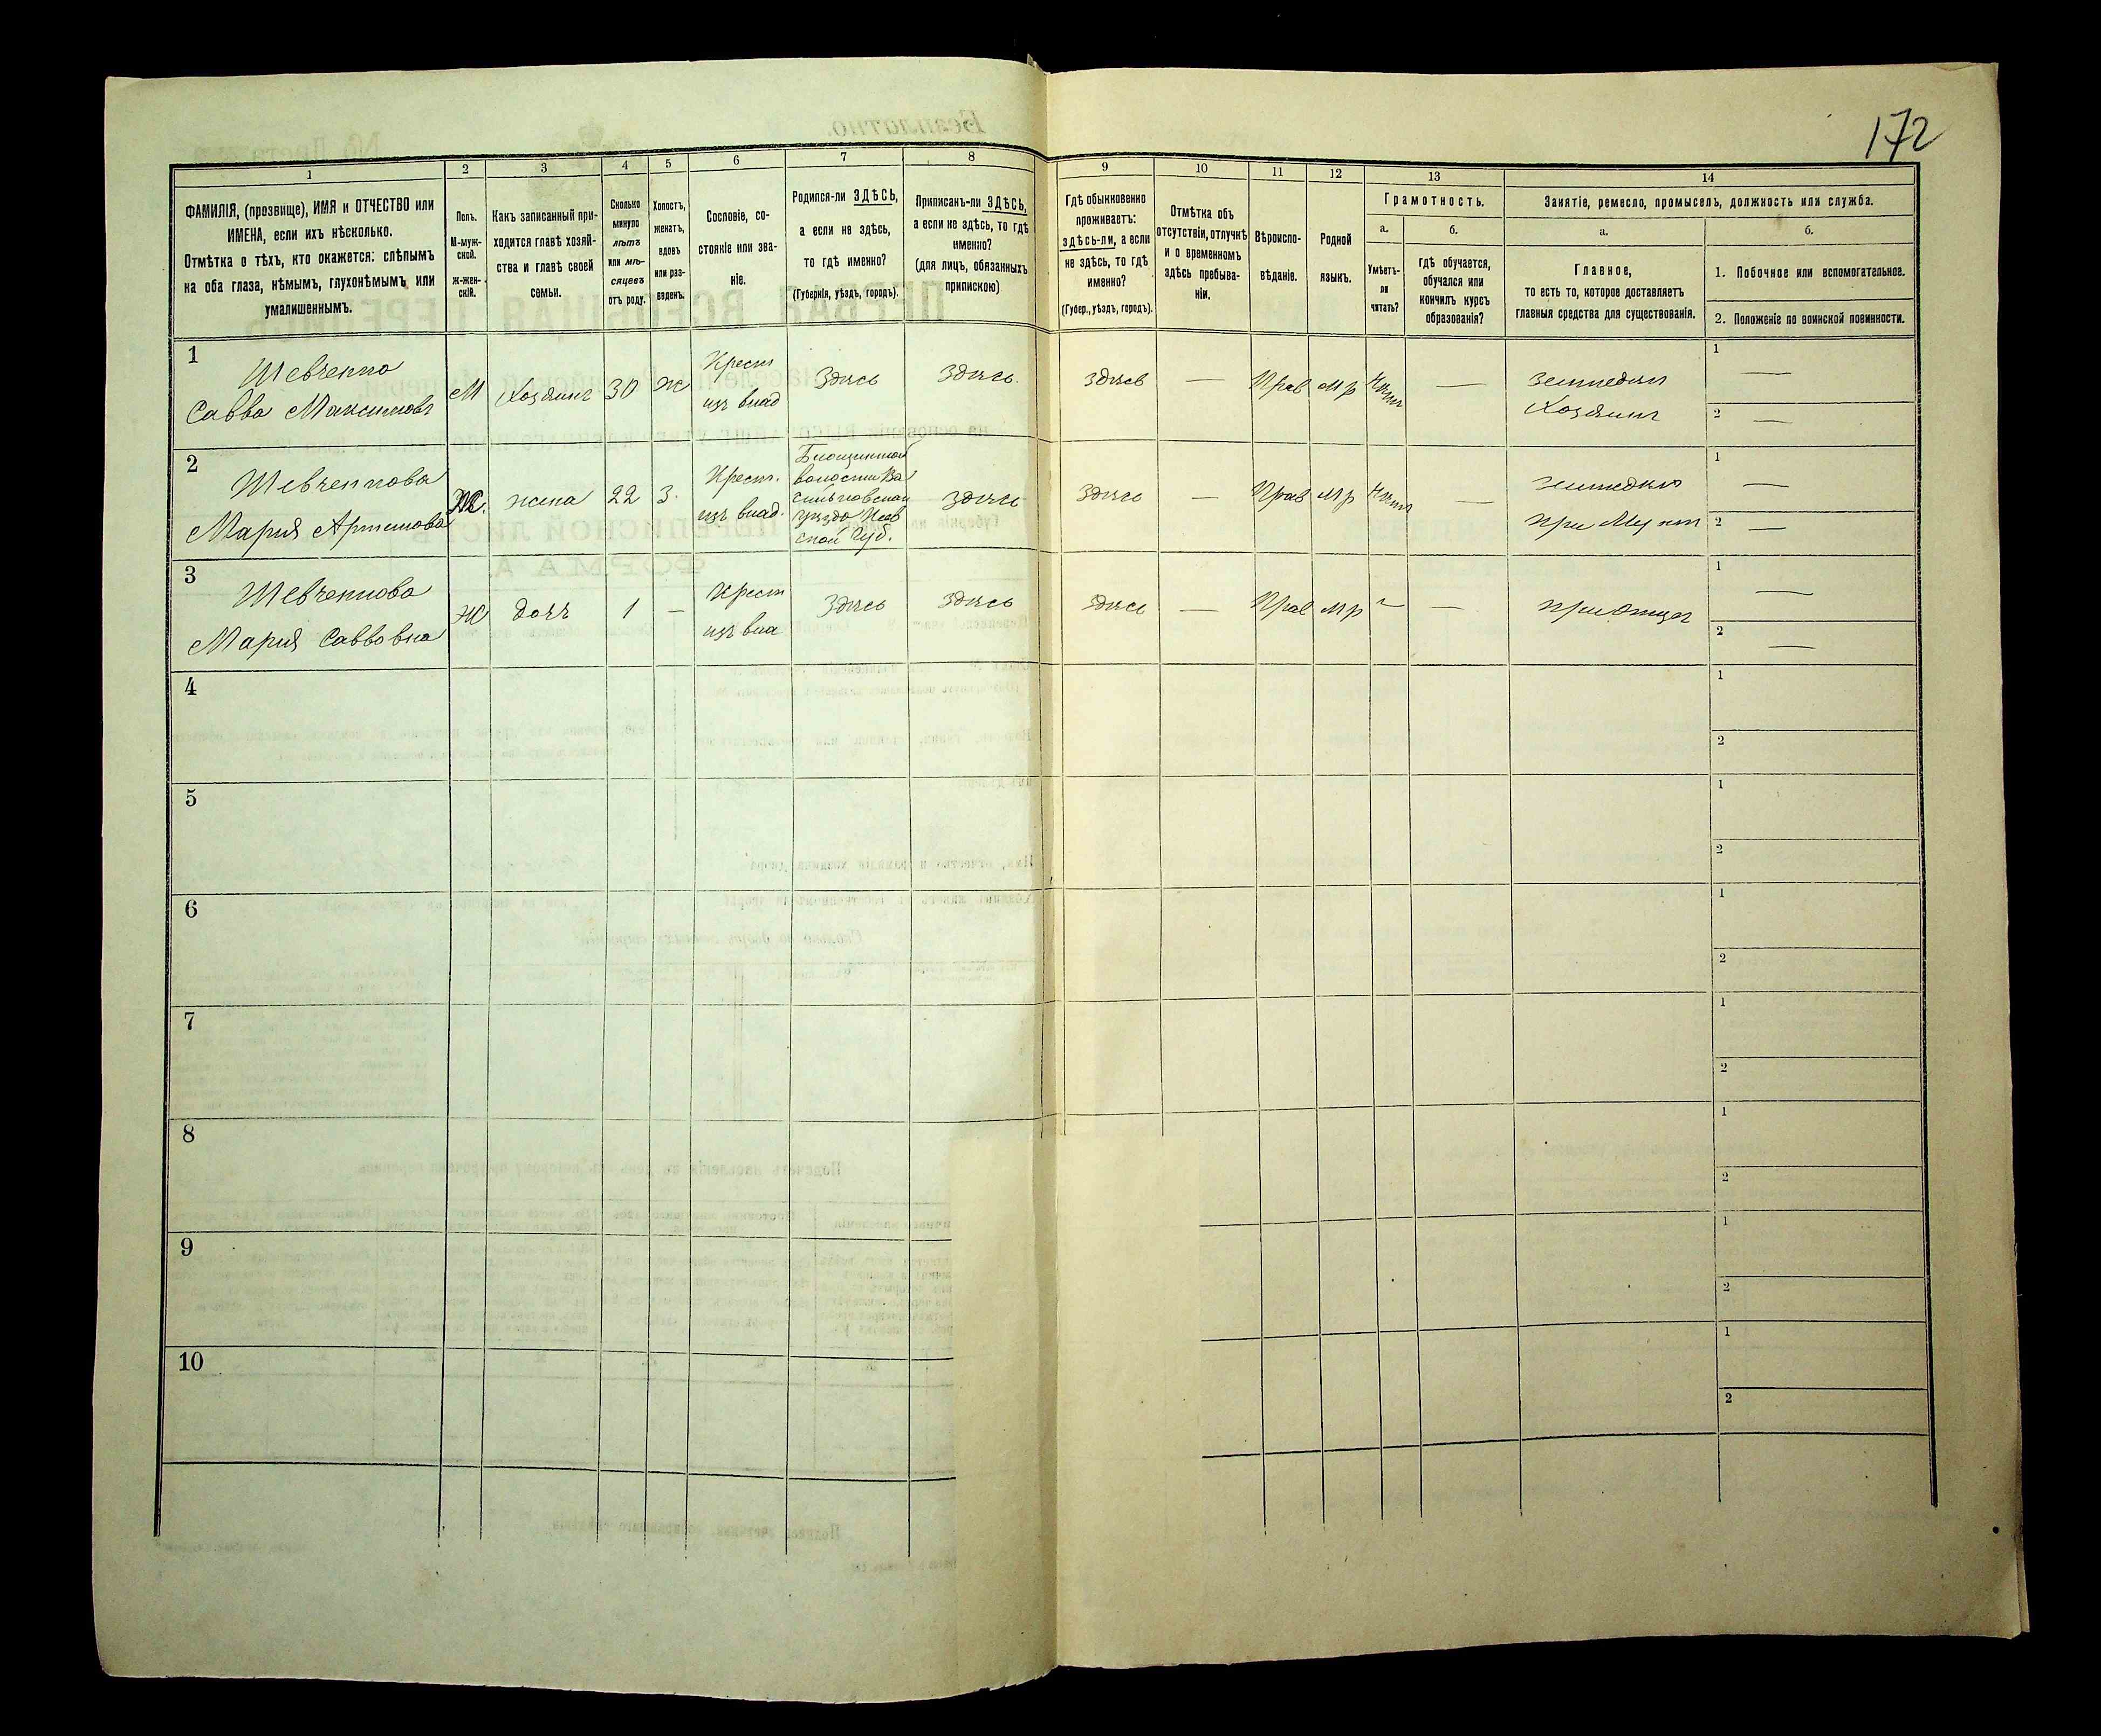 172
1
2
3
4
5
6
7
8
9
10
11
12
13
14
ФАМИЛІЯ, (прозвище), ИМЯ и ОТЧЕСТВО или
ИМЕНА, если ихъ нѣсколько.
Отмѣтка о тѣхъ, кто окажется: слѣпымъ
на оба глаза, нѣмымъ, глухонѣмымъ или
умалишеннымъ.
Полъ.
М-муж-
ской.
ж-жен-
скій.
Какъ записанный при-
ходится главѣ хозяй-
ства и главѣ своей
семьи.
Сколько
минуло
лѣтъ
или мѣ-
сяцевъ
отъ роду.
Холостъ,
женатъ,
вдовъ
или раз-
веденъ.
Сословіе, со-
стояніе или зва-
ніе.
Родился-ли ЗДѢСЬ,
а если не здѣсь,
то гдѣ именно?
(Губернія, уѣздъ, городъ).
Приписанъ-ли ЗДѢСЬ,
а если не здѣсь, то гдѣ
именно?
(для лицъ, обязанныхъ
припискою)
Гдѣ обыкновенно
проживаетъ:
здѣсь-ли, а если
не здѣсь, то гдѣ
именно?
(Губер., уѣздъ, городъ).
Отмѣтка объ
отсутствіи, отлучкѣ
и о временномъ
здѣсь пребыва-
ніи.
Вѣроиспо-
вѣданіе.
Родной
языкъ.
Грамотность.
а.
б.
Умѣетъ-
ли
читать?
гдѣ обучается,
обучался или
кончилъ курсъ
образованія?
Занятіе, ремесло, промыселъ, должность или служба.
а.
б.
Главное,
то есть то, которое доставляетъ
главныя средства для существованія.
1. Побочное или вспомогательное.
2. Положеніе по воинской повинности.
1
Шевченко
Савва Максимовъ
М
Хозяинъ
30
ж
Крест
изъ влад
Здѣсь
Здѣсь.
здѣсь
—
Прав
мр
Нѣтъ
—
земледѣл
Хозяинъ
1 —
2 —
2
Шевченкова
Мария Артемова
Ж.
жена
22
З.
Крест.
изъ влад.
волости Ва
сильковскаго
уѣзда Кiев
ской Губ.
Здѣсь
Здѣсь
—
Прав
мр
Нѣтъ
—
земледѣл
при Мужѣ
1 —
2 —
3
Шевченкова
Мария Саввовна
ж
дочь
1
—
Крест
изъ вла
Здѣсь
Здѣсь
здѣсь
—
Прав
мр
—
при Отцѣ
1 —
2 —
4
1
2
5
1
2
6
1
2
7
1
2
8
1
2
9
1
2
10
1
2